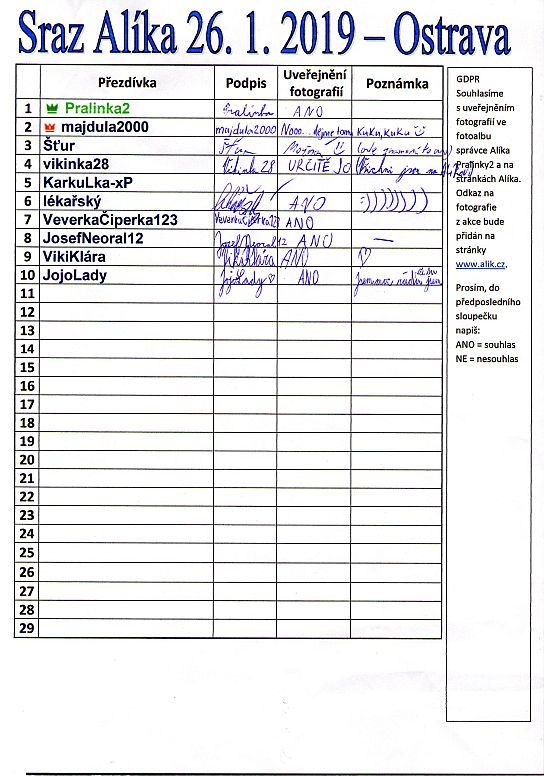 Sraz Alíka 26. 1. 2019 – Ostrava
Přezdívka Podpis Uveřejnění fotografií Poznámka
1 Pralinka2 Pralinka ANO
2 majdula2000 majdula2000 Nooo... dejme tomu KuKu, KuKu
3 Šťur Šťur Možná
4 vikinka28 Vikinka 28 URČITĚ JO
5 KarkuLka-xP
6 lékařský ANO :))))))))
7 VeverkaČiperka123 VeverkaČiperka123 ANO
8 JosefNeoral12 Josef Neoral 12 ANO —
9 VikiKlára VikiKlára ANO ♡
10 JojoLady JojoLady ♡ ANO
11
12
13
14
15
16
17
18
19
20
21
22
23
24
25
26
27
28
29
GDPR
Souhlasíme
s uveřejněním
fotografií ve
fotoalbu
správce Alíka
Pralinky2 a na
stránkách Alíka.
Odkaz na
fotografie
z akce bude
přidán na
stránky
www.alik.cz.
Prosím, do
předposledního
sloupečku
napiš:
ANO = souhlas
NE = nesouhlas